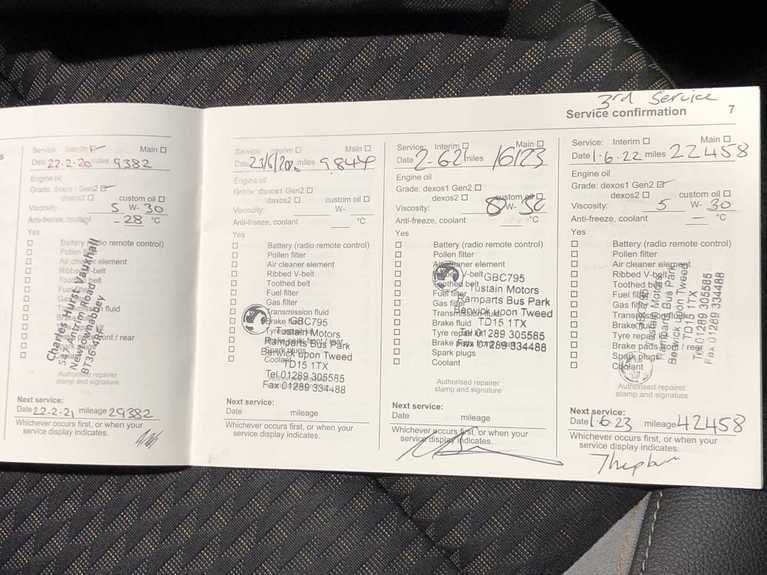 3rd Service
Service confirmation 7
Service: Interim Main
Date 22-2-20 miles 9382
Engine oil
Grade: dexos1 Gen2
dexos2 custom oil
Viscosity: 5 W- 30
Anti-freeze, coolant -28 °C
Yes
Battery (radio remote control)
Pollen filter
Air cleaner element
Ribbed V-belt
Toothed belt
Fuel filter
Charles Hurst Vauxhall
Newtownabbey
Authorised repairer
stamp and signature
Next service:
Date 22-2-21 mileage 29382
Whichever occurs first, or when your
service display indicates.
Service: Interim Main
Date miles 9844
Engine oil
Grade: dexos1 Gen2
dexos2 custom oil
Viscosity: W-
Anti-freeze, coolant °C
Yes
Battery (radio remote control)
Pollen filter
Air cleaner element
Ribbed V-belt
Toothed belt
Fuel filter
Gas filter
Transmission fluid
Brake fluid
Spark plugs
Coolant
GBC795
Tustain Motors
Ramparts Bus Park
Berwick upon Tweed
TD15 1TX
Tel.01289 305585
Fax 01289 334488
Next service:
Date mileage
Whichever occurs first, or when your
service display indicates.
Service: Interim Main
Date 2-621 miles 16123
Engine oil
Grade: dexos1 Gen2
dexos2 custom oil
Viscosity: W-
Anti-freeze, coolant °C
Yes
Battery (radio remote control)
Pollen filter
Air cleaner element
V-belt
Toothed belt
Fuel filter
Gas filter
Transmission fluid
Brake fluid
Tyre repair
Brake
Spark plugs
Coolant
GBC795
Tustain Motors
Ramparts Bus Park
Berwick upon Tweed
TD15 1TX
Tel 01289 305585
Fax 01289 334488
Authorised repairer
stamp and signature
Next service:
Date mileage
Whichever occurs first, or when your
service display indicates.
Service: Interim Main
Date 1-6-22 miles 22458
Engine oil
Grade: dexos1 Gen2
dexos2 custom oil
Viscosity: 5 W- 30
Anti-freeze, coolant - °C
Yes
Battery (radio remote control)
Pollen filter
Air cleaner element
Ribbed V-belt
Toothed belt
Fuel filter
Gas filter
Transmission fluid
Brake fluid
Tyre repair
Brake pads front / rear
Spark plugs
Coolant
GBC795
Tustain Motors
Ramparts Bus Park
Berwick upon Tweed
TD15 1TX
Tel 01289 305585
Fax 01289 334488
Authorised repairer
stamp and signature
Next service:
Date 1-6-23 mileage 42458
Whichever occurs first, or when your
service display indicates.